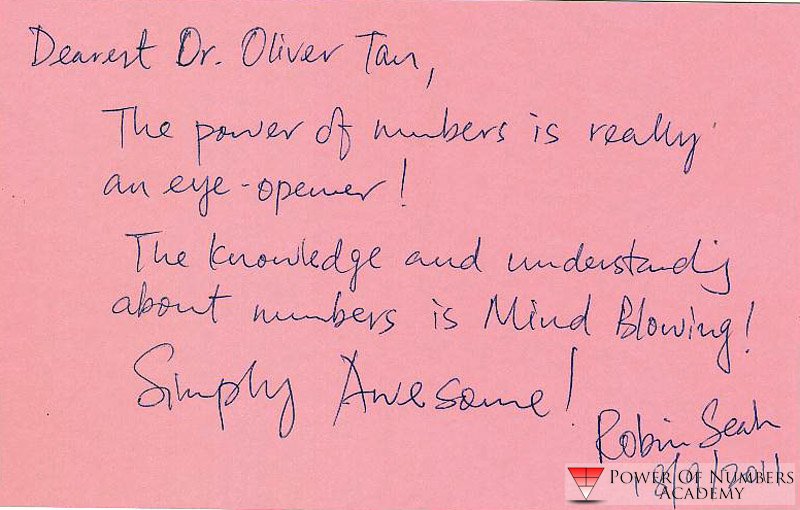 Dearest Dr. Oliver Tan,
The power of numbers is really
an eye-opener!
The knowledge and understanding
about numbers is Mind Blowing!
Simply Awesome!
Robin Seah
POWER OF NUMBERS
ACADEMY